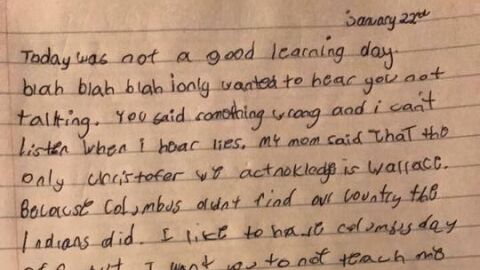 January 22nd
Today was not a good learning day.
blah blah blah i only wanted to hear you not
talking. You said something wrong and i can't
listen when I hear lies. My mom said that the
only christofer we acknokledg is wallace.
Because Columbus didnt find our country the
Indians did. I like to have columbus day
I want you to not teach me